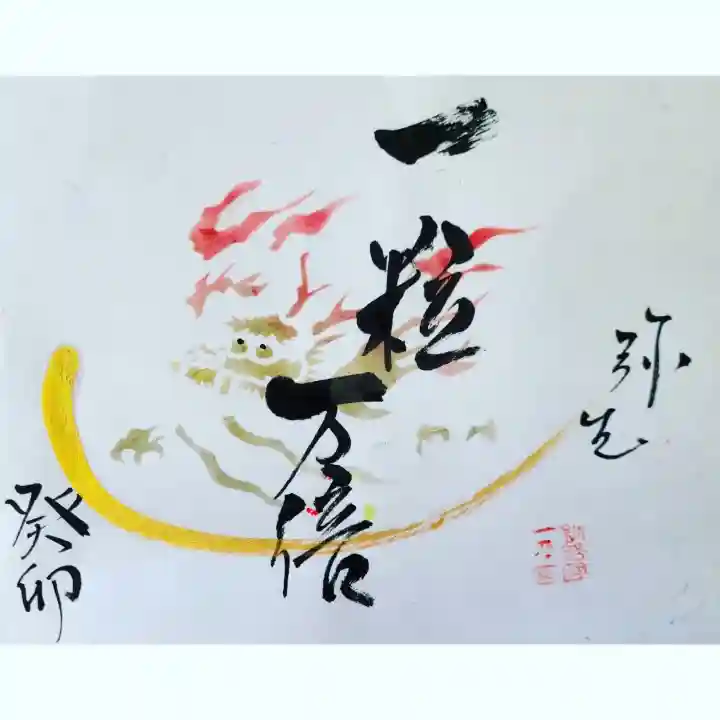 弥生
一粒
万倍
癸卯